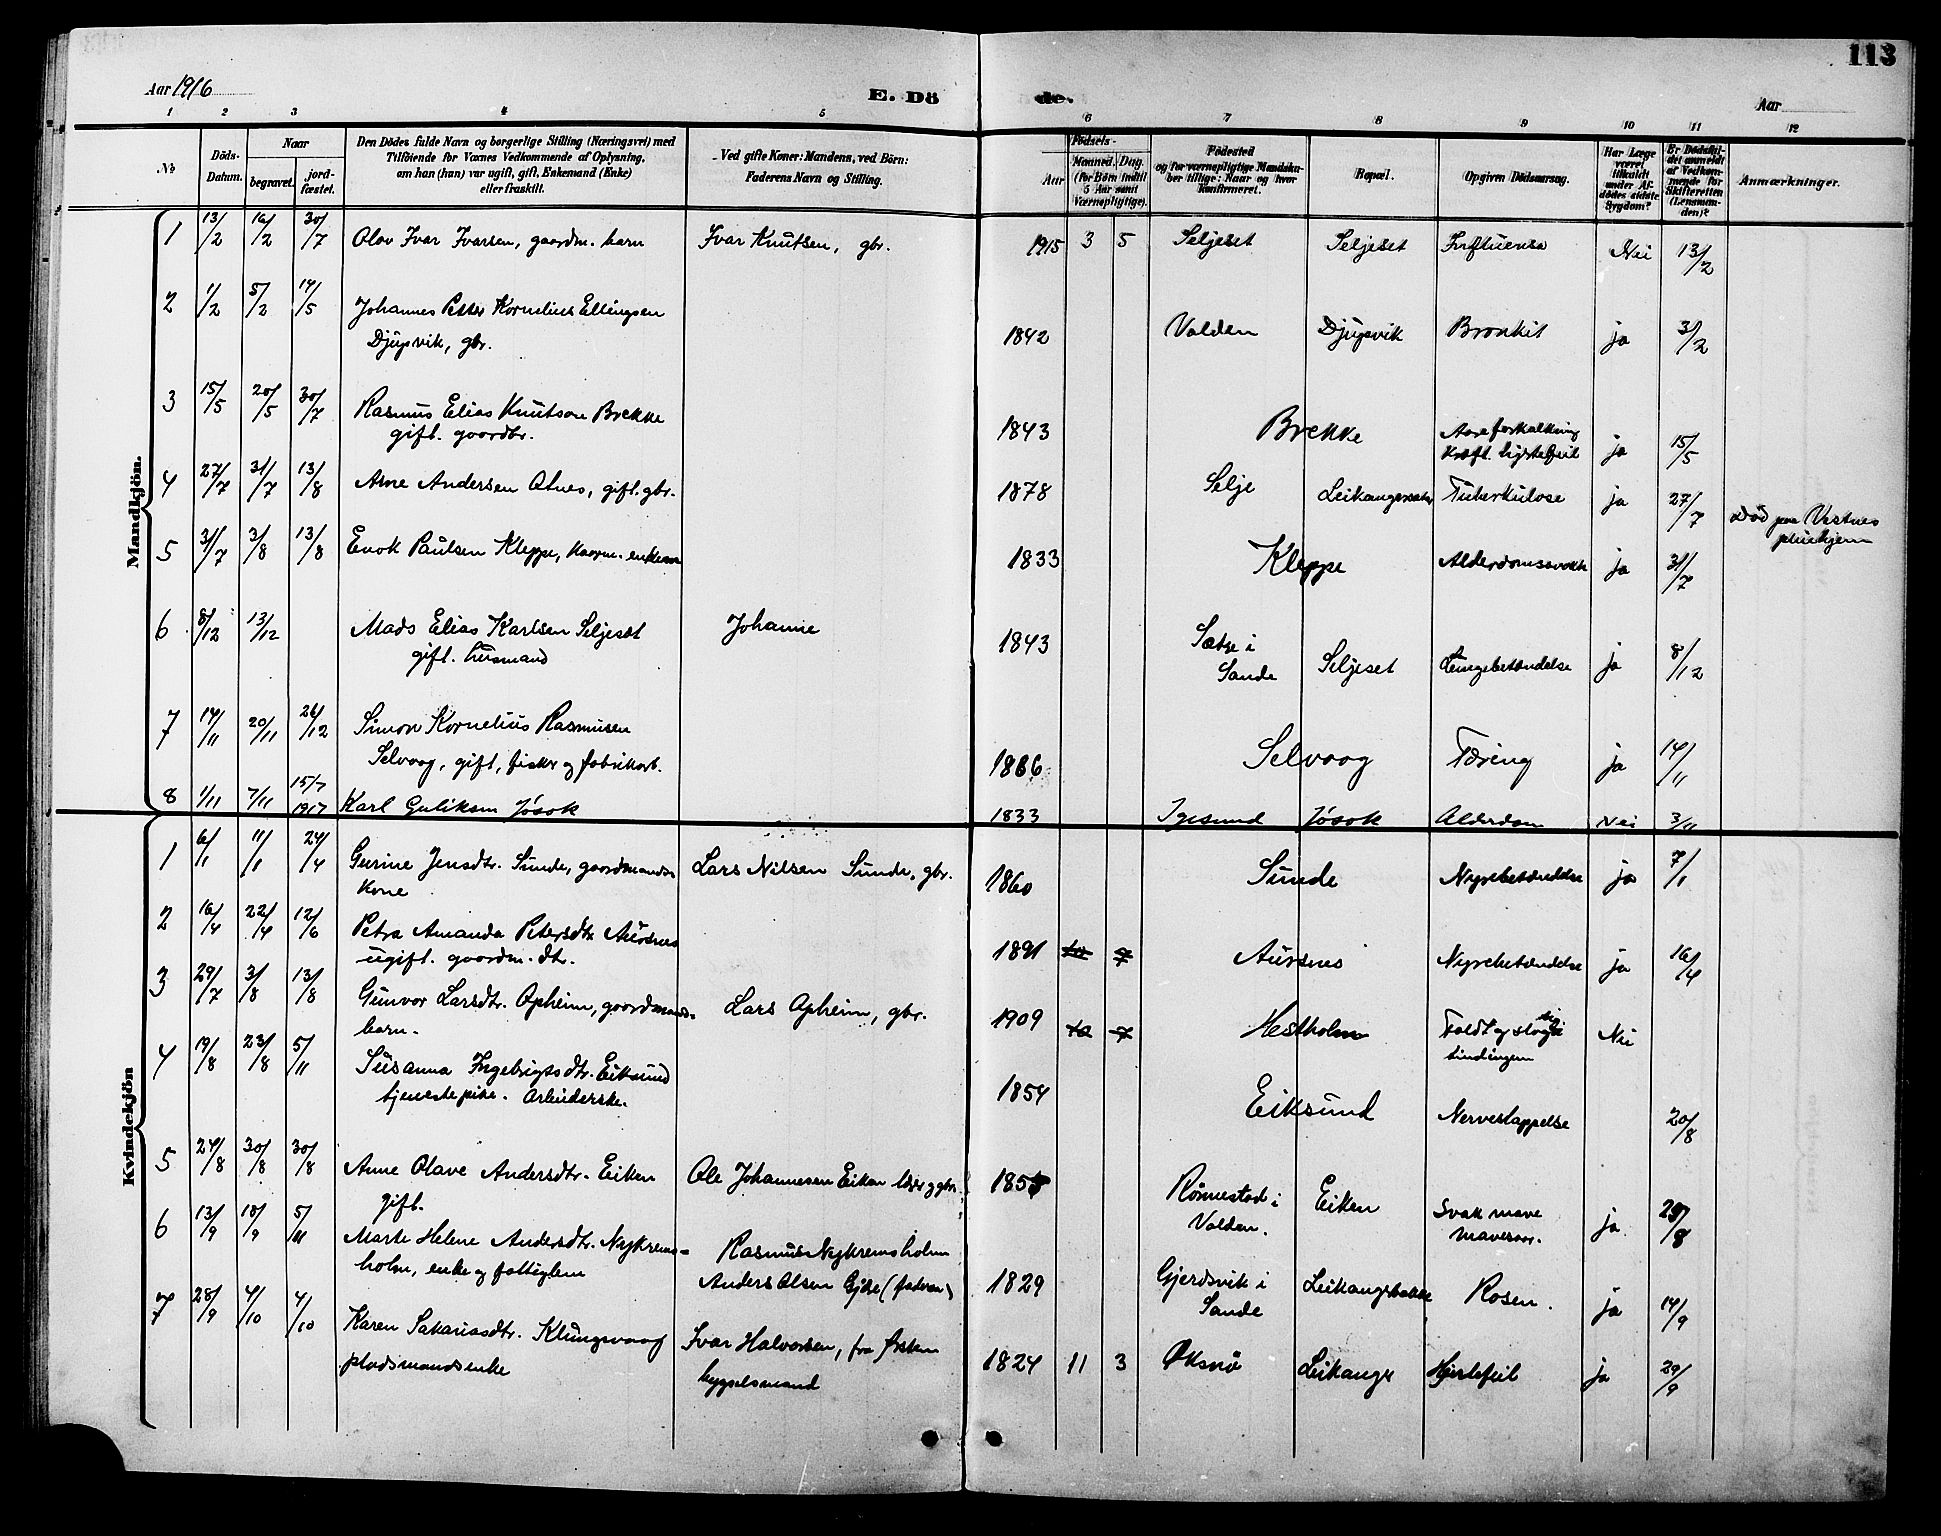 113
Aar 1916
E. Dö de.
Aar
1 2 3 4 5 6 7 8 9 10 11 12
No
Döds-Datum.
Naar
begravet.
jord-fæstet.
Den Dödes fulde Navn og borgerlige Stilling (Næringsvei) med
Tilföiende for Voxnes Vedkommende af Oplysning,
om han (hun) var ugift, gift, Enkemand (Enke)
eller fraskilt.
Ved gifte Koner: Mandens, ved Börn:
Faderens Navn og Stilling.
Födsels-
Aar
Maaned. Dag.
(for Börn indtil
5 Aar samt
Værnepligtige).
Födested
og for værnepligtige Mandska-
ber tillige: Naar og hvor
konfirmeret.
Bopæl.
Opgiven Dödsaarsag.
Har Læge
været
tilkaldt
under Af-
dödes sidste
Sygdom?
Er Dödsfal-
det anmeldt
af Vedkom-
mende for
Skifteretten
(Lensman-
den)?
Anmærkninger.
Mandkjön.
1 13/2 16/2 30/7 Olav Ivar Ivarsen, gaardm. barn Ivar Knutsen, gbr. 1915 3 5 Seljeset Seljeset Influensa Nei 13/2
2 1/2 5/2 14/5 Johannes Petter Kornelius Ellingsen
Djupvik, gbr. 1842 Volden Djupvik Bronkit ja 3/2
3 15/5 20/5 30/7 Rasmus Elias Knutson Brekke
gift. gaardbr. 1843 Brekke Aareforkalkning
Kraft. hjertefeil ja 15/5
4 27/7 31/7 13/8 Arne Andersen Alnes, gift. gbr. 1878 Selje Tuberkulose ja 27/7 Död paa Vestnes
pleiehjem
5 31/7 3/8 13/8 Enok Paulsen Kleppe, 1833 Kleppe ja 31/7
6 8/12 13/12 Mads Elias Karlsen Seljeset
gift. husmand Johanne 1843 Sætre i
Sande Seljeset Lungebetændelse ja 8/12
7 14/11 20/11 26/12 Simon Kornelius Rasmusen
Selvaag, gift, fisker og fabrikarb. 1866 Selvaag Tæring ja 14/11
8 1/11 7/11 15/7 1917 Karl Guliksen Jøsok 1833 Igesund Jøsok Alderdom Nei 3/11
Kvindekjön
1 6/1 11/1 24/4 Gurine Jensdtr. Sunde, gaardmands
kone Lars Nilsen Sunde, gbr. 1860 Sunde Nyrebetændelse ja 7/1
2 16/4 22/4 12/6 Petra Amanda Petersdtr Aursnes
ugift. gaardm. dtr. 1891 Aursnes Nyrebetændelse ja 16/4
3 29/7 3/8 13/8 Gunvor Larsdtr. Opheim, gaardmands-
barn. Lars Opheim, gbr. 1909 Hestholm Faldt og slog sig
tindingen Nei
4 19/8 23/8 5/11 Susanna Ingebrigtsdtr. Eiksund
tjenestepike. Arbeiderske. 1854 Eiksund Nerveslappelse 20/8
5 24/8 30/8 30/8 Anne Olave Andersdtr. Eiken
gift. Ole Johannesen Eiken lærer og gbr. 1855 Rönnestad i
Volden. Eiken Svak mave
mavesaar. ja. 25/8
6 13/9 18/9 5/11 Marte Helene Andersdtr. Nykrems-
holm, enke og fattiglem Rasmus Nykremsholm
Anders Olsen (faderen) 1829 Gjerdsvik i
Sande Leikangerbakke Rosen. ja 14/9
7 28/9 4/10 4/10 Karen Sakariasdtr. Klungsvaag
pladsmandsenke Ivar Halvorsen, fra Ørsten
bygselsmand 1824 11 3 Øksnö Leikanger Hjertefeil ja 29/9